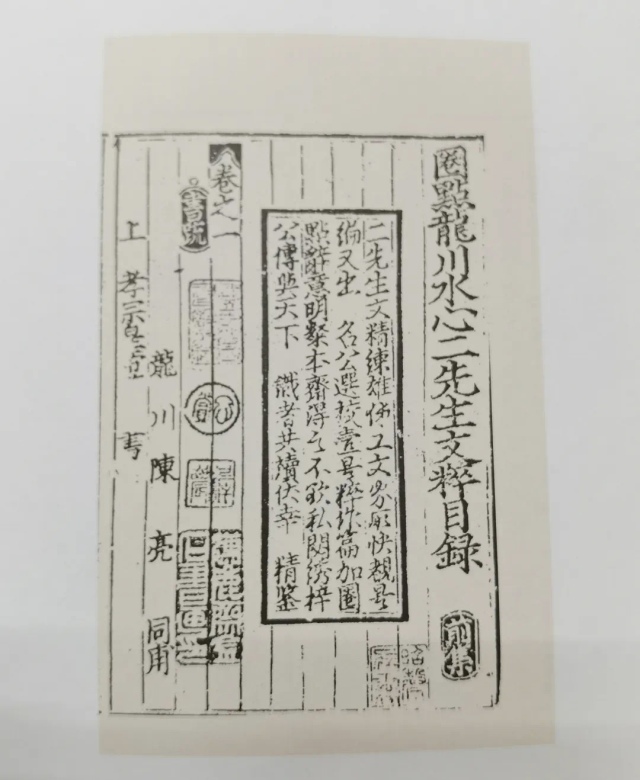 圈點龍川水心二先生文粹目録
前集
二先生文精練雄偉工文快覩是
編又出 名公選校壹是粹作篇加圈
點辭意明粲本齋得之不欲私閟綉梓
公傳與天下 識者共讀伏幸 精鑒
卷之一
書疏
龍川陳亮 同甫
上 孝宗皇帝書